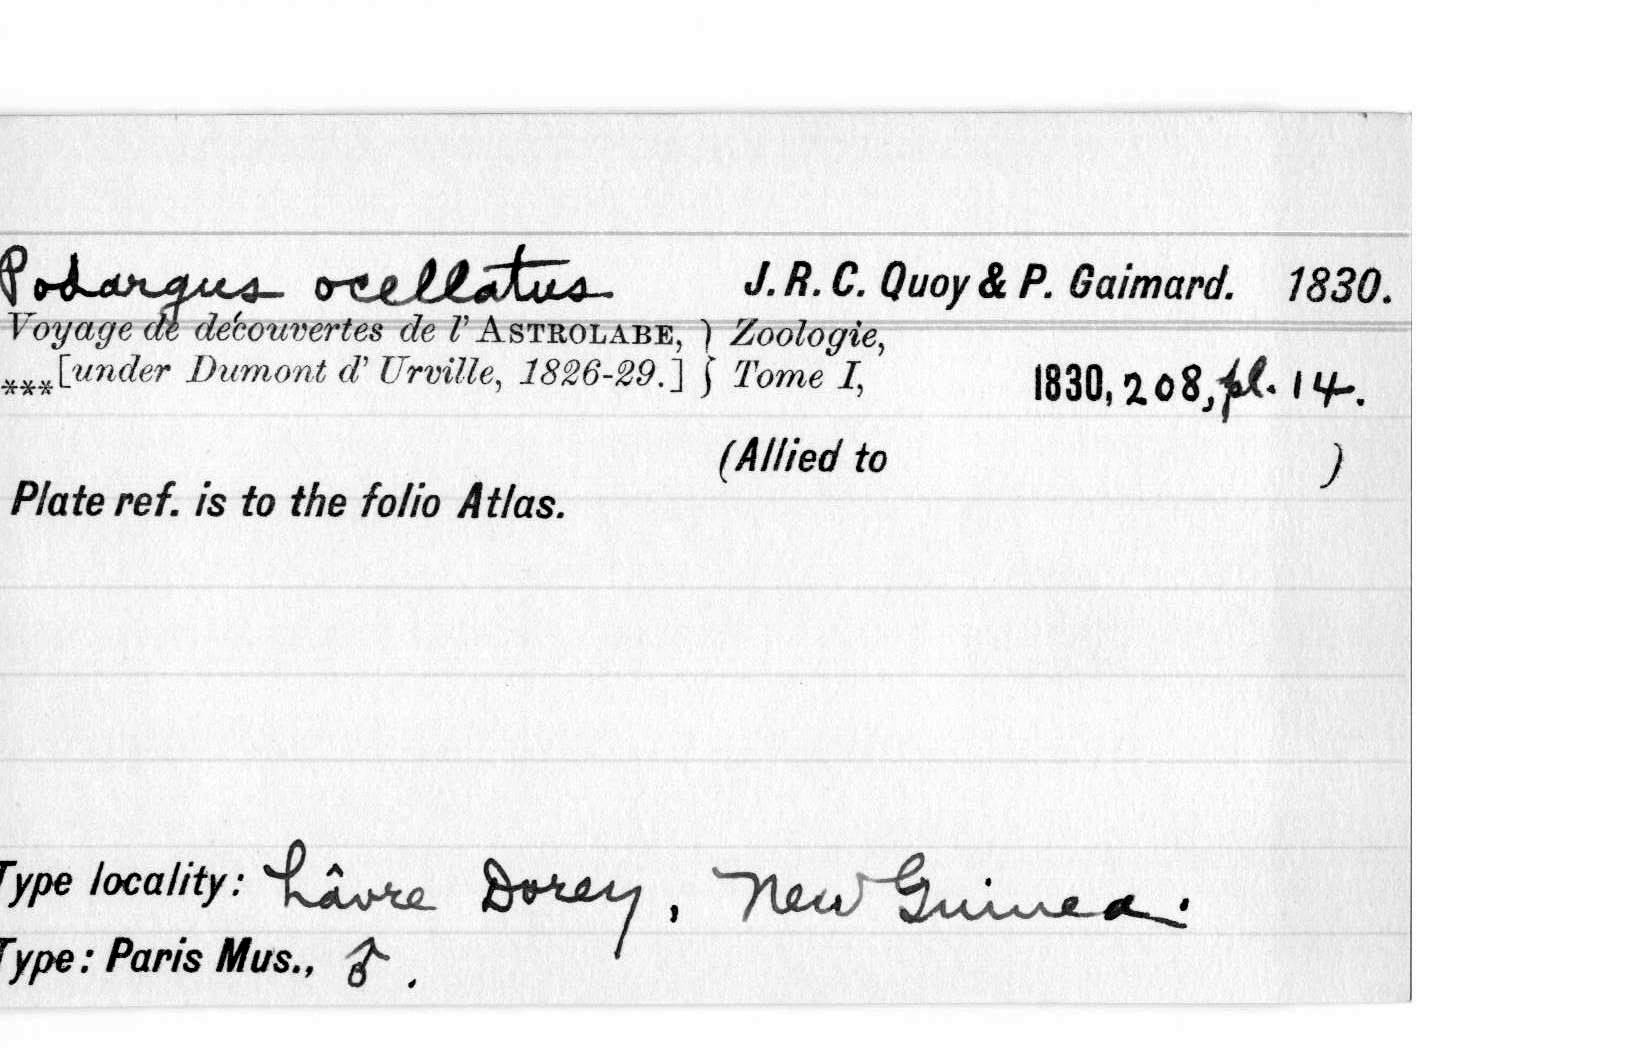 Podargus ocellatus J. R. C. Quoy & P. Gaimard. 1830.
Voyage de découvertes de l' ASTROLABE, } Zoologie,
***[under Dumont d' Urville, 1826-29.] } Tome I, 1830, 208, pl. 14.
(Allied to )
Plate ref. is to the folio Atlas.
Type locality: hâvre Dorey, New Guinea.
Type: Paris Mus., ♂.